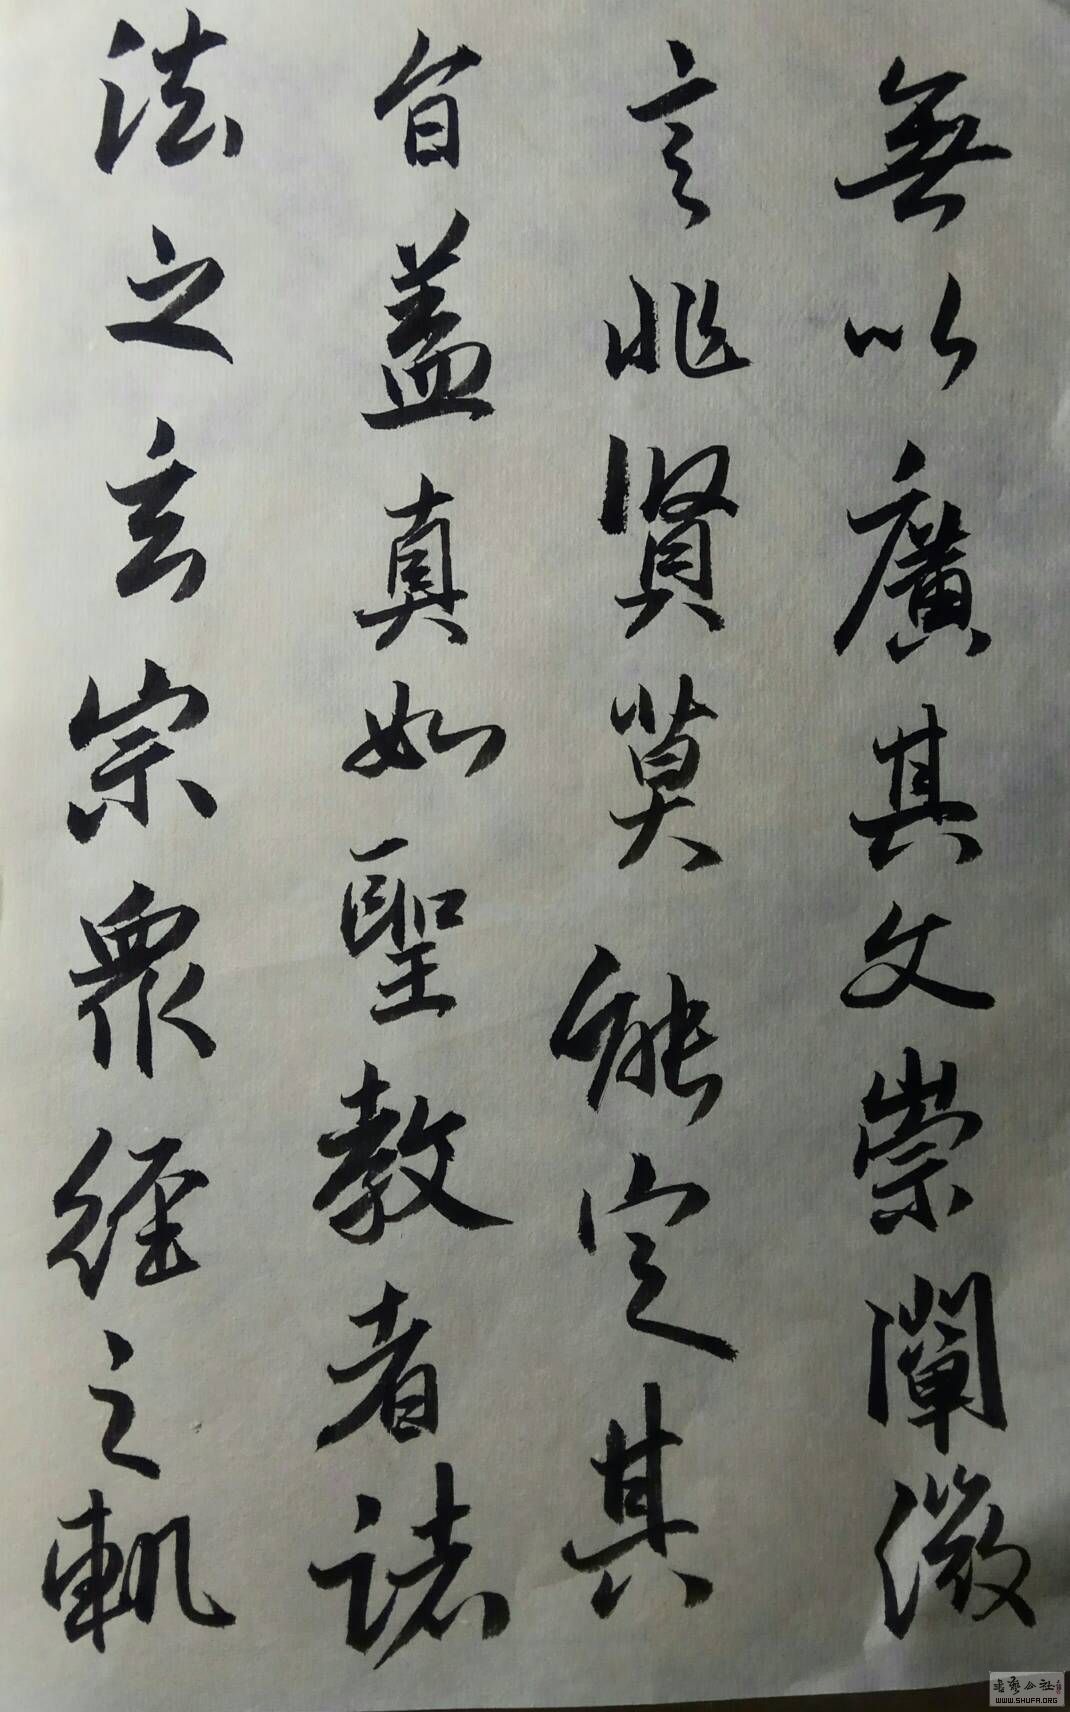 無以廣其文崇闡微
言非賢莫能定其
旨蓋真如聖教者諸
法之玄宗衆經之軌
书艺公社
WWW.SHUFA.ORG